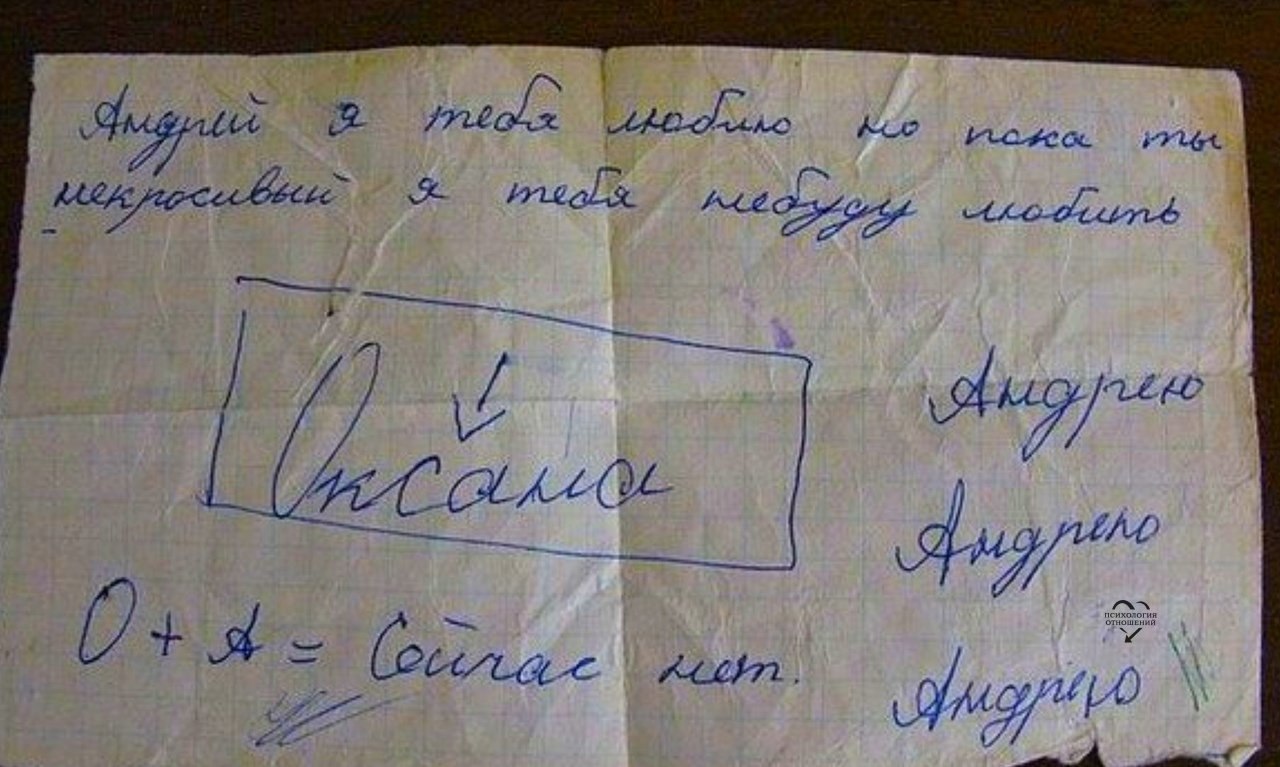 Андрей я тебя люблю но пока ты
некросивый я тебя небуду любить
Оксана
Андрею
Андрею
ПСИХОЛОГИЯ
ОТНОШЕНИЙ
О + А = Сейчас нет.
Андрею